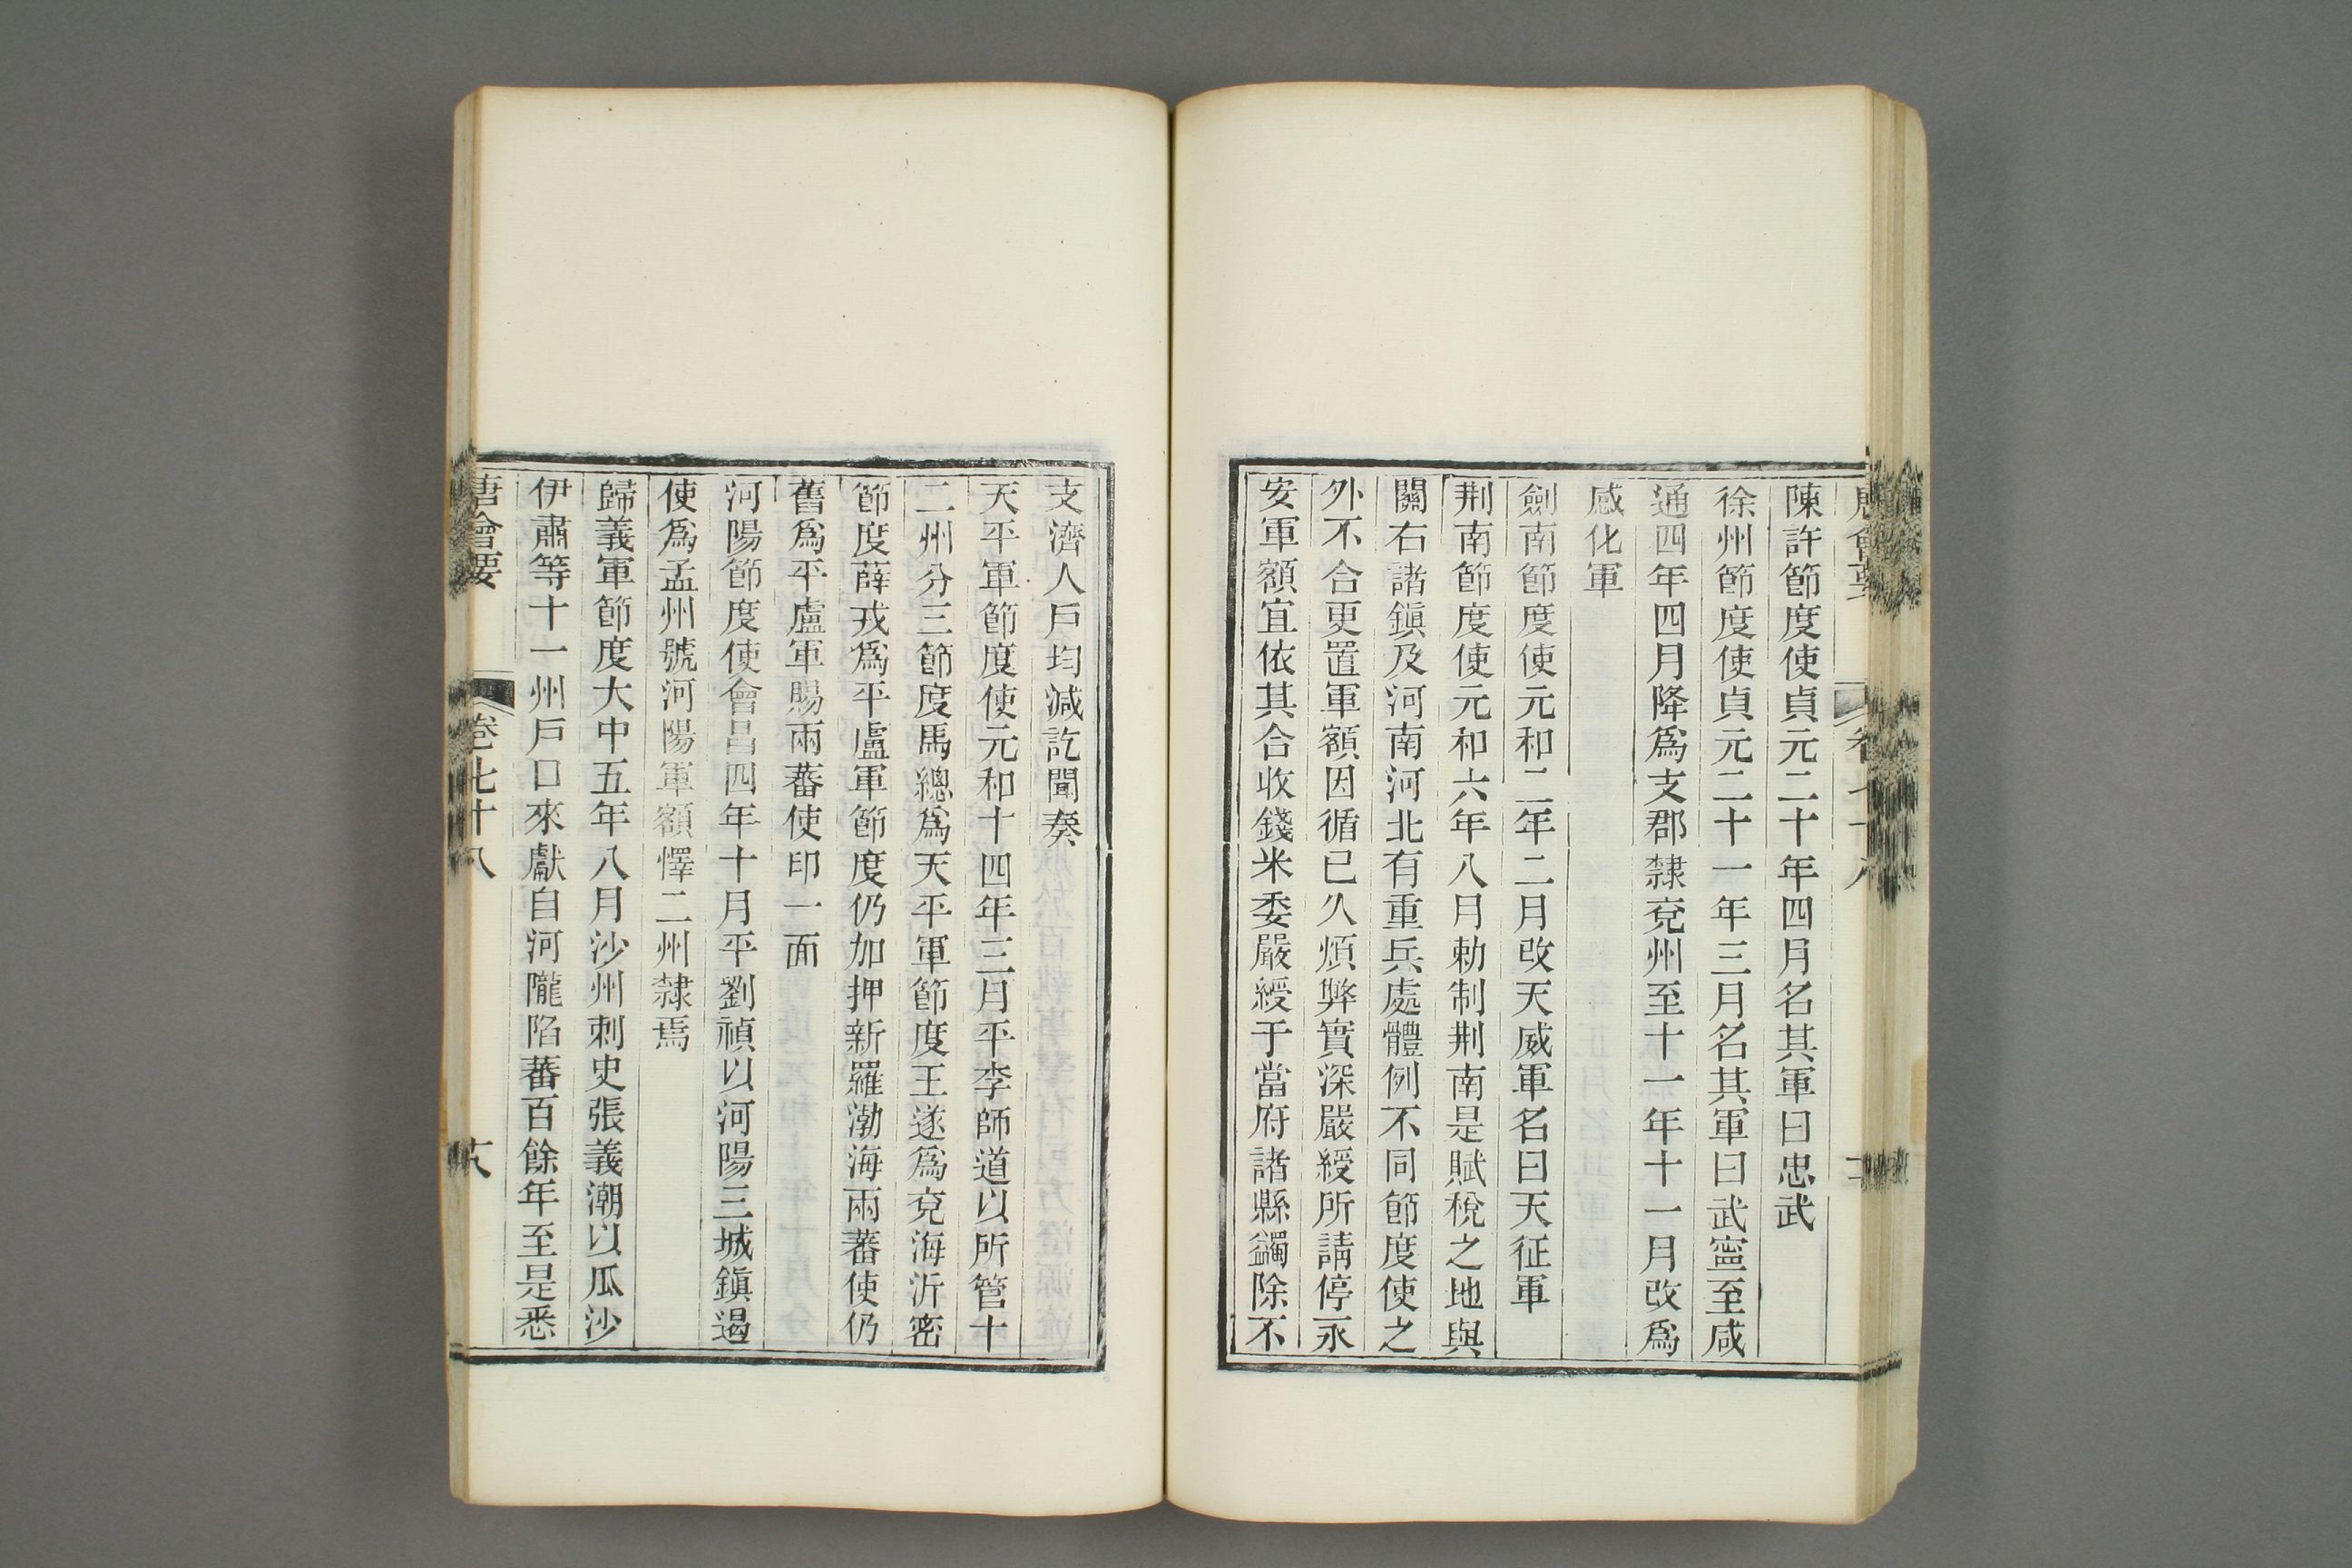 陳許節度使貞元二十年四月名其軍曰忠武
徐州節度使貞元二十一年三月名其軍曰武寧至咸
通四年四月降爲支郡隸兗州至十一年十一月改爲
感化軍
劍南節度使元和二年二月改天威軍名曰天征軍
荆南節度使元和六年八月勅制荆南是賦稅之地與
關右諸鎮及河南河北有重兵處體例不同節度使之
外不合更置軍額因循已久煩弊實深嚴綬所請停永
安軍額宜依其合收錢米委嚴綬于當府諸縣蠲除不
支濟人戸均減訖聞奏
天平軍節度使元和十四年三月平李師道以所管十
二州分三節度馬總爲天平軍節度王遂爲兗海沂密
節度薛戎爲平盧軍節度仍加押新羅渤海兩蕃使仍
舊爲平盧軍賜兩蕃使印一面
河陽節度使會昌四年十月平劉禎以河陽三城鎮遏
使爲孟州號河陽軍額懌二州隸焉
歸義軍節度大中五年八月沙州刺史張義潮以瓜沙
伊肅等十一州戸口來獻自河隴陷蕃百餘年至是悉
唐會要
卷七十八